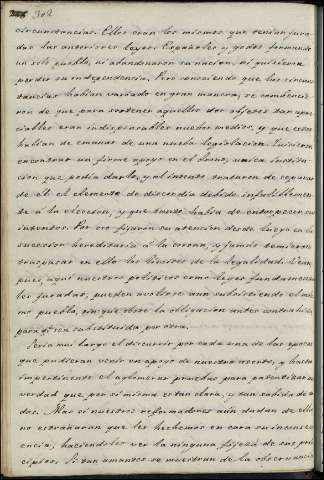 302
circunstancias. Ellos eran los mismos que tenian jura-
das las anteriores leyes Españolas y godas formando
un solo pueblo, ni abandonaron su nacion, ni quisieron
perder su independencia. Pero conociendo que las circuns-
tancias habian variado en gran manera, se convencie-
ron de que para sostener aquellos dos objetos tan apre-
ciables eran indispensables nuebos medios, y que estos
habian de emanar de una nueba legislacion. Quisieron
encontrar un firme apoyo en el trono, unica institu-
cion que podia darlo, y al intento trataron de separar
de el el elemento de discordia debido infaliblemen-
te á la eleccion, y que tanto habia de entorpecer sus
intentos. Por eso fijaron su atencion desde luego en la
sucesion hereditaria á la corona, y
traspasar en ella los limites de la legalidad. Vean
pues, aqui nuestros politicos como leyes fundamenta-
les juradas, pueden abolirse aun subsistiendo el mis-
mo pueblo, sin que obste la obligacion antes contrahida
para ser substituida por otra.
Seria muy largo el discurrir por cada una de las epocas
que pudieran venir en apoyo de nuestro aserto, y hasta
impertinente el aglomerar pruebas para patentizar una
verdad que por si misma es tan clara, y tan sabida de to-
dos. Mas si nuestros reformadores aun dudan de ello
no estrañaran que les hechemos en cara su inconsecu-
encia, haciendoles ver la ninguna fijeza de sus prin-
cipios. Si tan amantes se muestran de la observancia